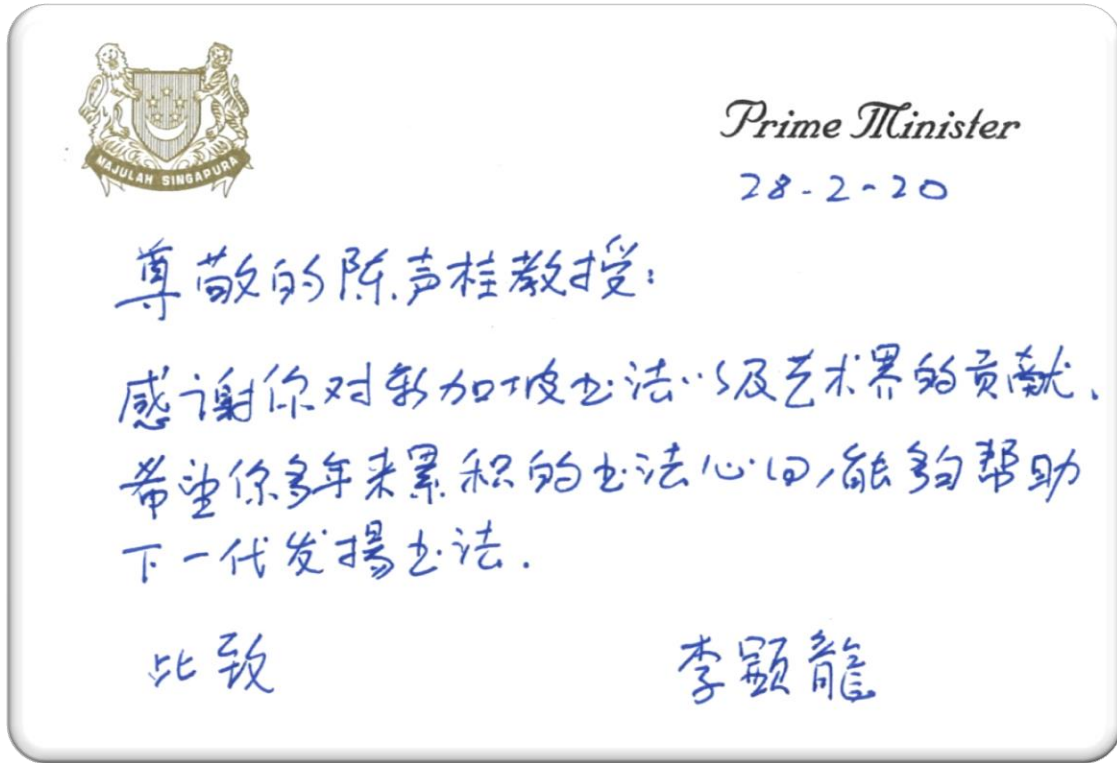 MAJULAH SINGAPURA
Prime Minister
28-2-20
尊敬的陈声桂教授:
感谢你对新加坡书法以及艺术界的贡献.
希望你多年来累积的书法心血,能够帮助
下一代发揚书法.
此致
李顯龍